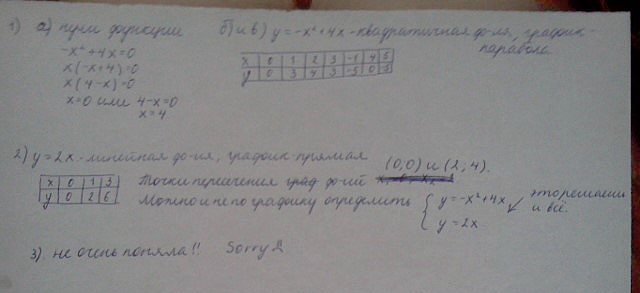 1) а) нули функции
-x²+4x=0
x(-x+4)=0
x(4-x)=0
x=0 или 4-x=0
x=4
б) и в) y=-x²+4x-квадратичная ф-ия, график-
парабола
x 0 1 2 3 -1 4 5
y 0 3 4 3 -5 0 -5
2) y=2x-линейная ф-ия, график-прямая
x 0 1 3
y 0 2 6
(0;0) и (2;4).
Точки пересечения граф ф-ий
Можно и не по графику определить
{ y=-x²+4x
y=2x.
это решаешь
и всё.
3) не очень поняла!! Sorry